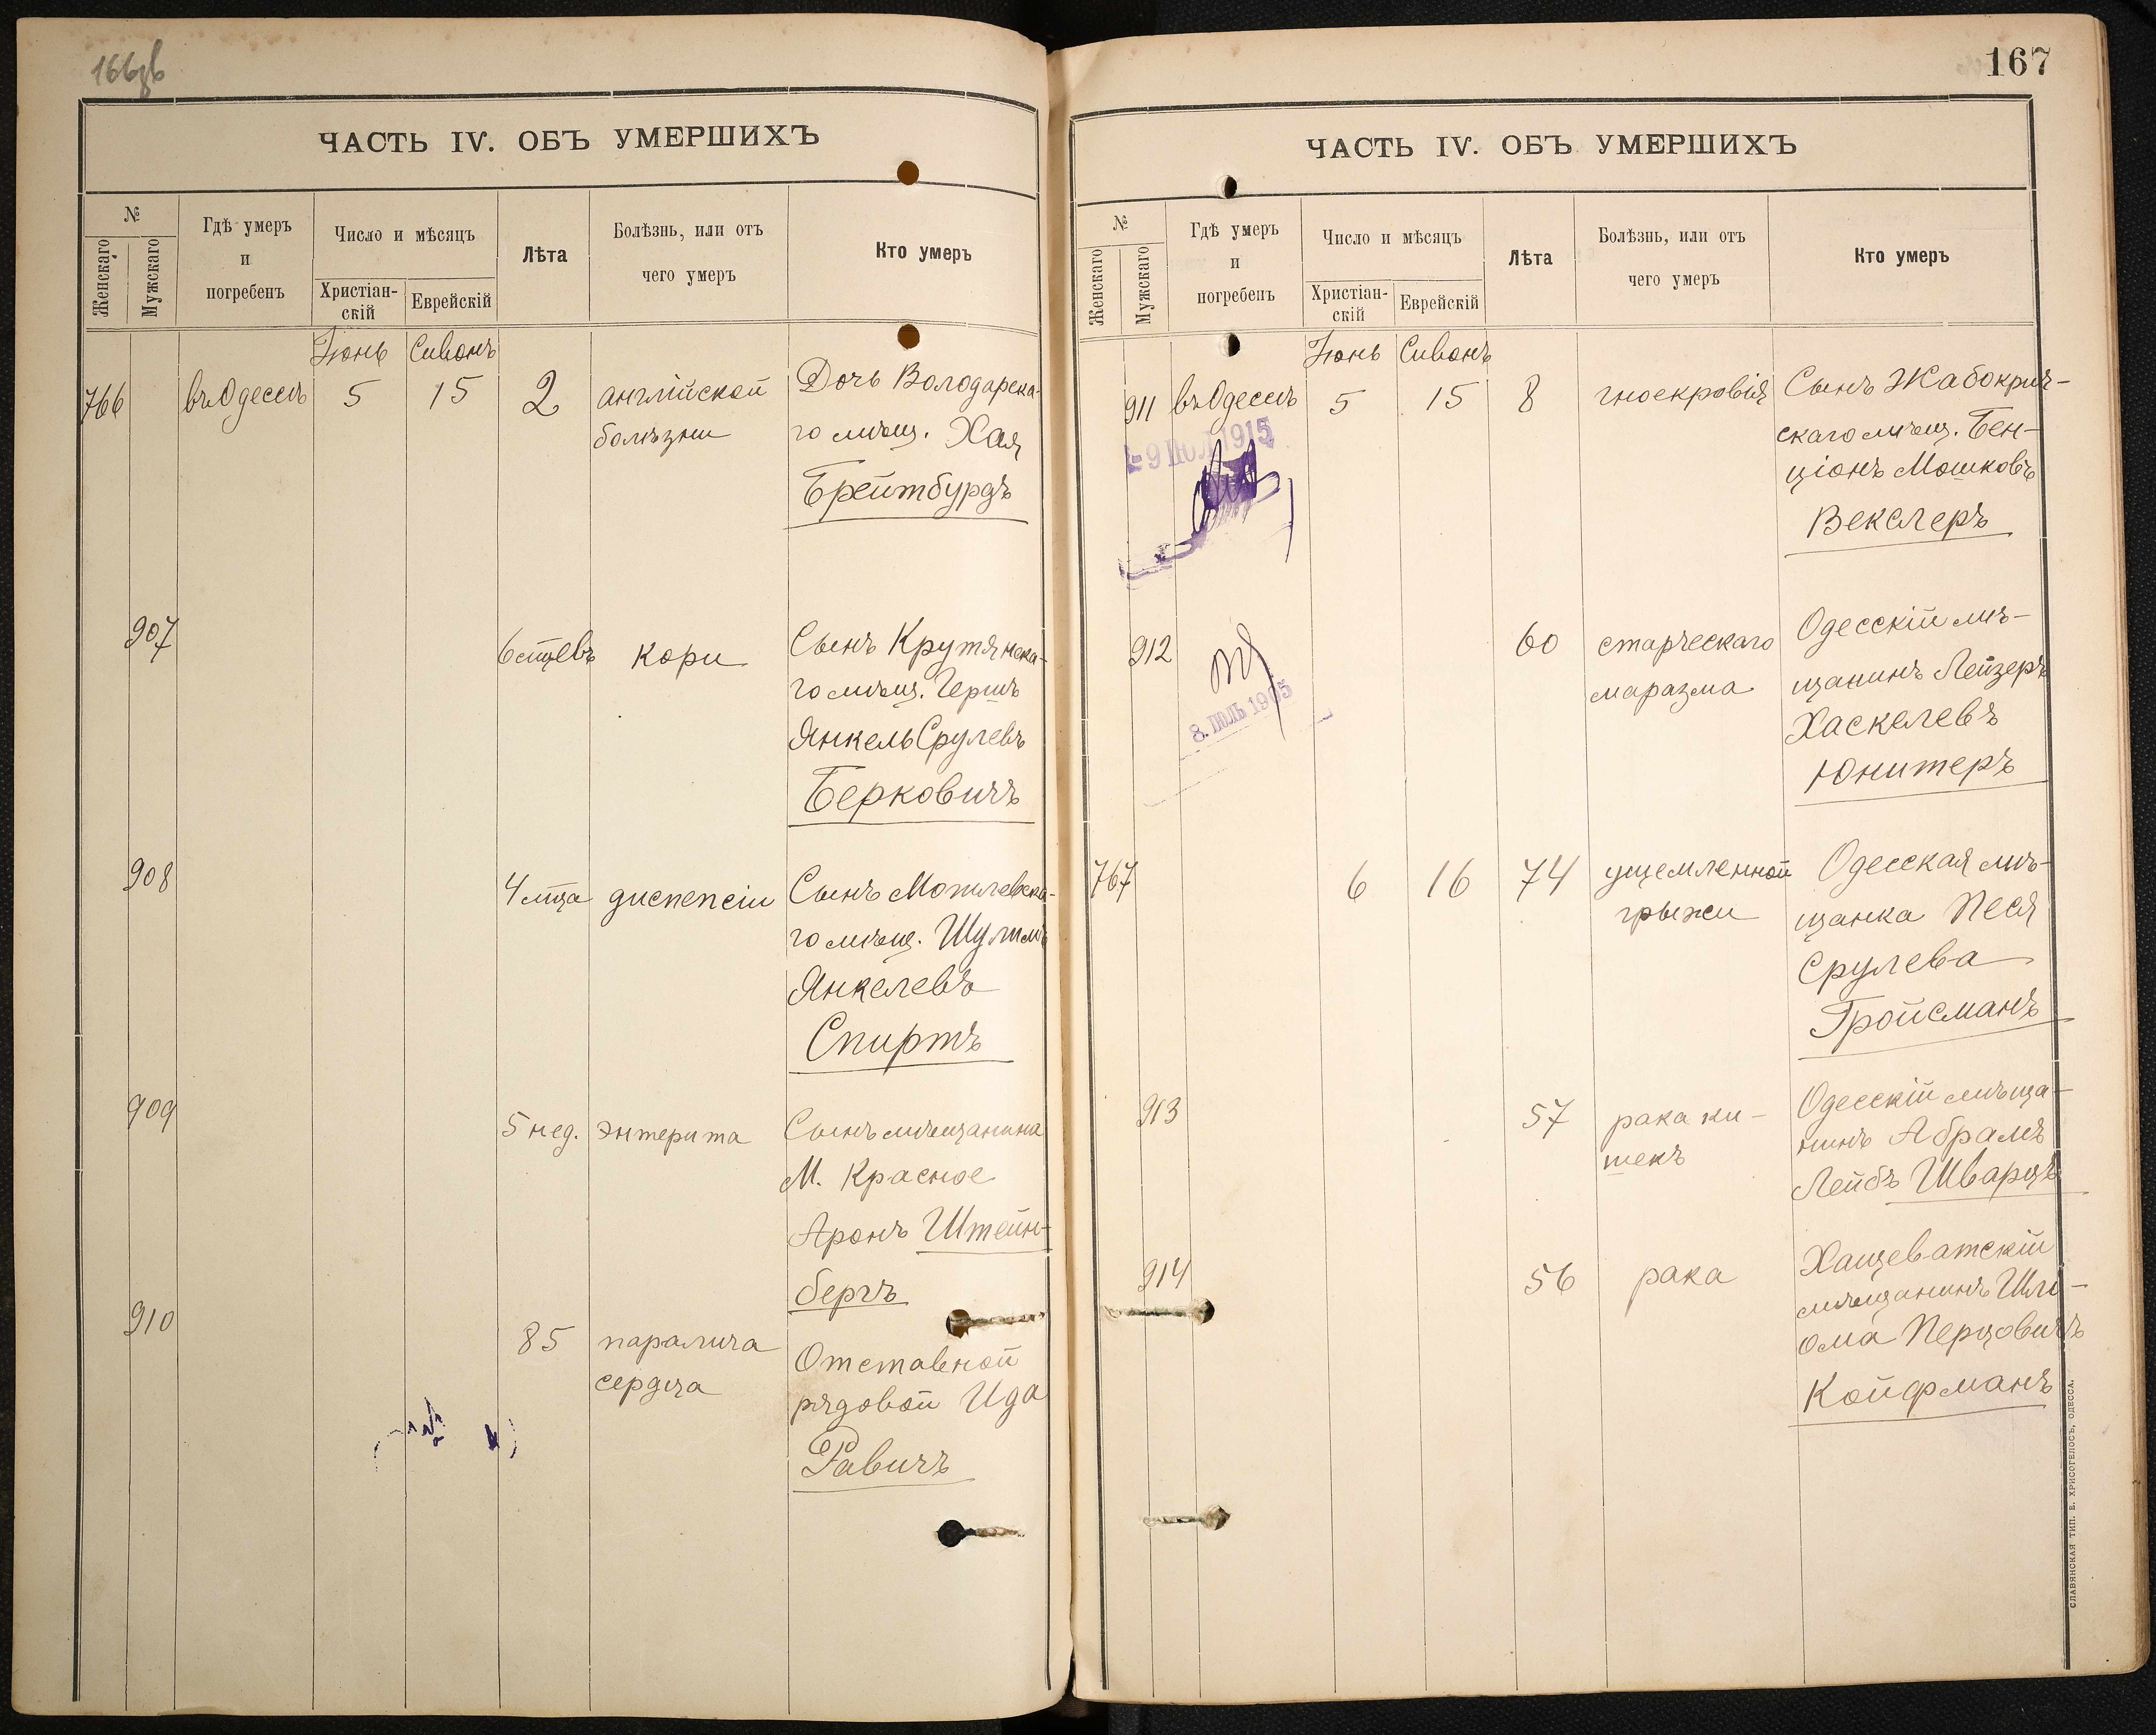 166об
ЧАСТЬ IV. ОБЪ УМЕРШИХЪ
№
Женскаго
Мужскаго
Гдѣ умеръ
и
погребенъ
Число и мѣсяцъ
Христіан-
скій
Еврейскій
Лѣта
Болѣзнь, или отъ
чего умеръ
Кто умеръ
Іюнь Сивонъ
766 въ Одессѣ 5 15 2 англійской Дочь Володарска-
болѣзни го мѣщ. Хая
Брейтбурдъ
907 6 мцевъ кори Сынъ Крутянска-
го мѣщ. Гершъ
Янкель Срулевъ
Берковичъ
908 4 мца диспепсіи Сынъ Могилевска-
го мѣщ. Шулимъ
Янкелевъ
Спиртъ
909 5 нед. энтерита Сынъ мѣщанина
М. Красное
Аронъ Штейн-
бергъ
910 85 паралича Отставной
сердца рядовой Ида
Равичъ
167
ЧАСТЬ IV. ОБЪ УМЕРШИХЪ
№
Женскаго
Мужскаго
Гдѣ умеръ
и
погребенъ
Число и мѣсяцъ
Христіан-
скій
Еврейскій
Лѣта
Болѣзнь, или отъ
чего умеръ
Кто умеръ
Іюнь Сивонъ
911 въ Одессѣ 5 15 8 гноекровія Сынъ Жабокрич-
скаго мѣщ. Бен-
ціонъ Мошковъ
Векслеръ
9 ІЮЛ 1915
912 60 старческаго Одесскій мѣ-
маразма щанинъ Лейзеръ
Хаскелевъ
Юнитеръ
8. ІЮЛЬ 1905
767 6 16 74 ущемленной Одесская мѣ-
грыжи щанка Песя
Срулева
Гройсманъ
913 57 рака ки- Одесскій мѣща-
шекъ нинъ Абрамъ
Лейбъ Шварцъ
914 56 рака Хащеватскій
мѣщанинъ Шло-
ома Перцовичъ
Койфманъ
СЛАВЯНСКАЯ ТИП. Е. ХРИСОГЕЛОСЪ, ОДЕССА.